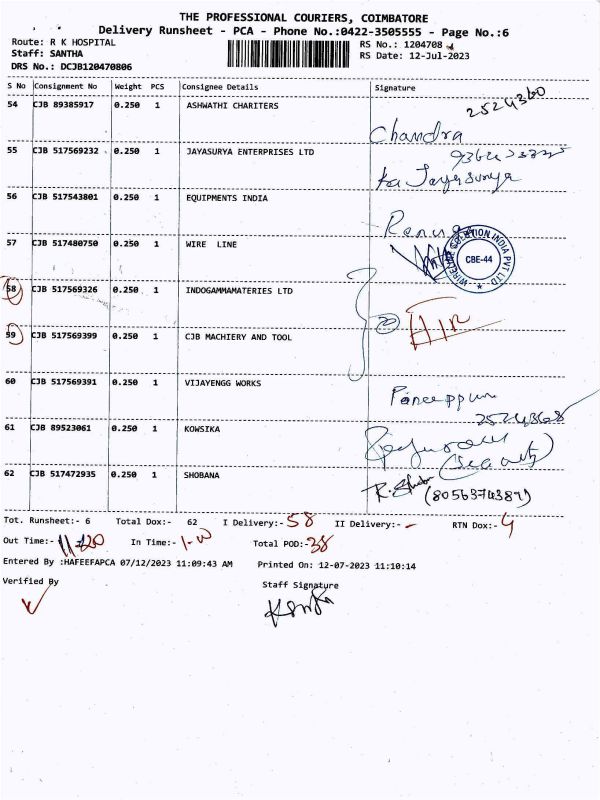 THE PROFESSIONAL COURIERS, COIMBATORE
Delivery Runsheet - PCA - Phone No.:0422-3505555 - Page No.:6
Route: R K HOSPITAL RS No.: 1204708
Staff: SANTHA RS Date: 12-Jul-2023
DRS No.: DCJB120470806
S No Consignment No Weight PCS Consignee Details Signature
54 CJB 89385917 0.250 1 ASHWATHI CHARITERS 2524360
Chandra
55 CJB 517569232 0.250 1 JAYASURYA ENTERPRISES LTD
Ka Jayasurya
56 CJB 517543801 0.250 1 EQUIPMENTS INDIA
57 CJB 517480750 0.250 1 WIRE LINE
WIRELINE SOLUTION INDIA PVT LTD
CBE-44
58 CJB 517569326 0.250 1 INDOGAMMAMATERIES LTD
59 CJB 517569399 0.250 1 CJB MACHIERY AND TOOL
60 CJB 517569391 0.250 1 VIJAYENGG WORKS
61 CJB 89523061 0.250 1 KOWSIKA
(Security)
62 CJB 517472935 0.250 1 SHOBANA
(8056374389)
Tot. Runsheet:- 6 Total Dox:- 62 I Delivery:- 58 II Delivery:- - RTN Dox:- 4
Out Time:- In Time:- Total POD:- 38
Entered By :HAFEEFAPCA 07/12/2023 11:09:43 AM Printed On: 12-07-2023 11:10:14
Verified By Staff Signature